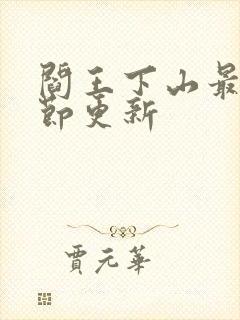 閻王下山最
節更新
賈元華